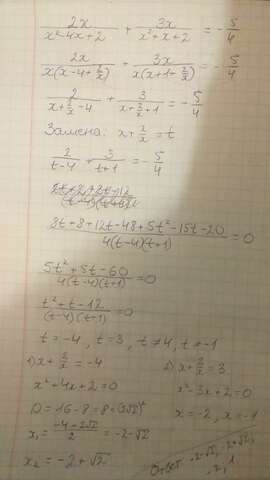 2x/(x²-4x+2) + 3x/(x²+x+2) = -5/4
2x/(x(x-4+2/x)) + 3x/(x(x+1+2/x)) = -5/4
2/(x+2/x-4) + 3/(x+2/x+1) = -5/4
Замена: x+2/x = t
2/(t-4) + 3/(t+1) = -5/4
(8t+8+12t-48+5t²-15t-20)/(4(t-4)(t+1)) = 0
(5t²+5t-60)/(4(t-4)(t+1)) = 0
(t²+t-12)/((t-4)(t+1)) = 0
t = -4, t = 3, t ≠ 4, t ≠ -1
1) x+2/x = -4
x²+4x+2=0
D = 16-8 = 8 = (2√2)²
x₁ = (-4-2√2)/2 = -2-√2
x₂ = -2+√2
2) x+2/x = 3
x²-3x+2=0
x = -2, x = -1
Ответ: -2-√2, -2+√2,